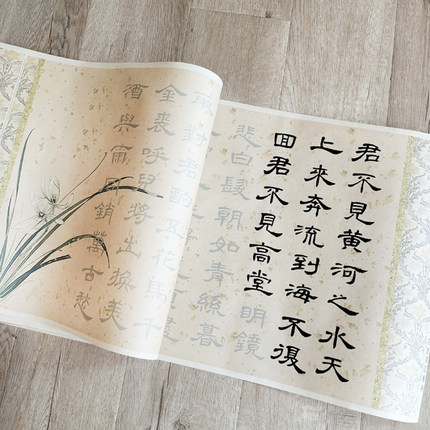 君不見黃河之水天
上來奔流到海不復
囬君不見高堂明鏡
悲白髮朝如青絲暮
取對君酌五花馬千
金裘呼兒將出換美
酒與爾同銷萬古愁